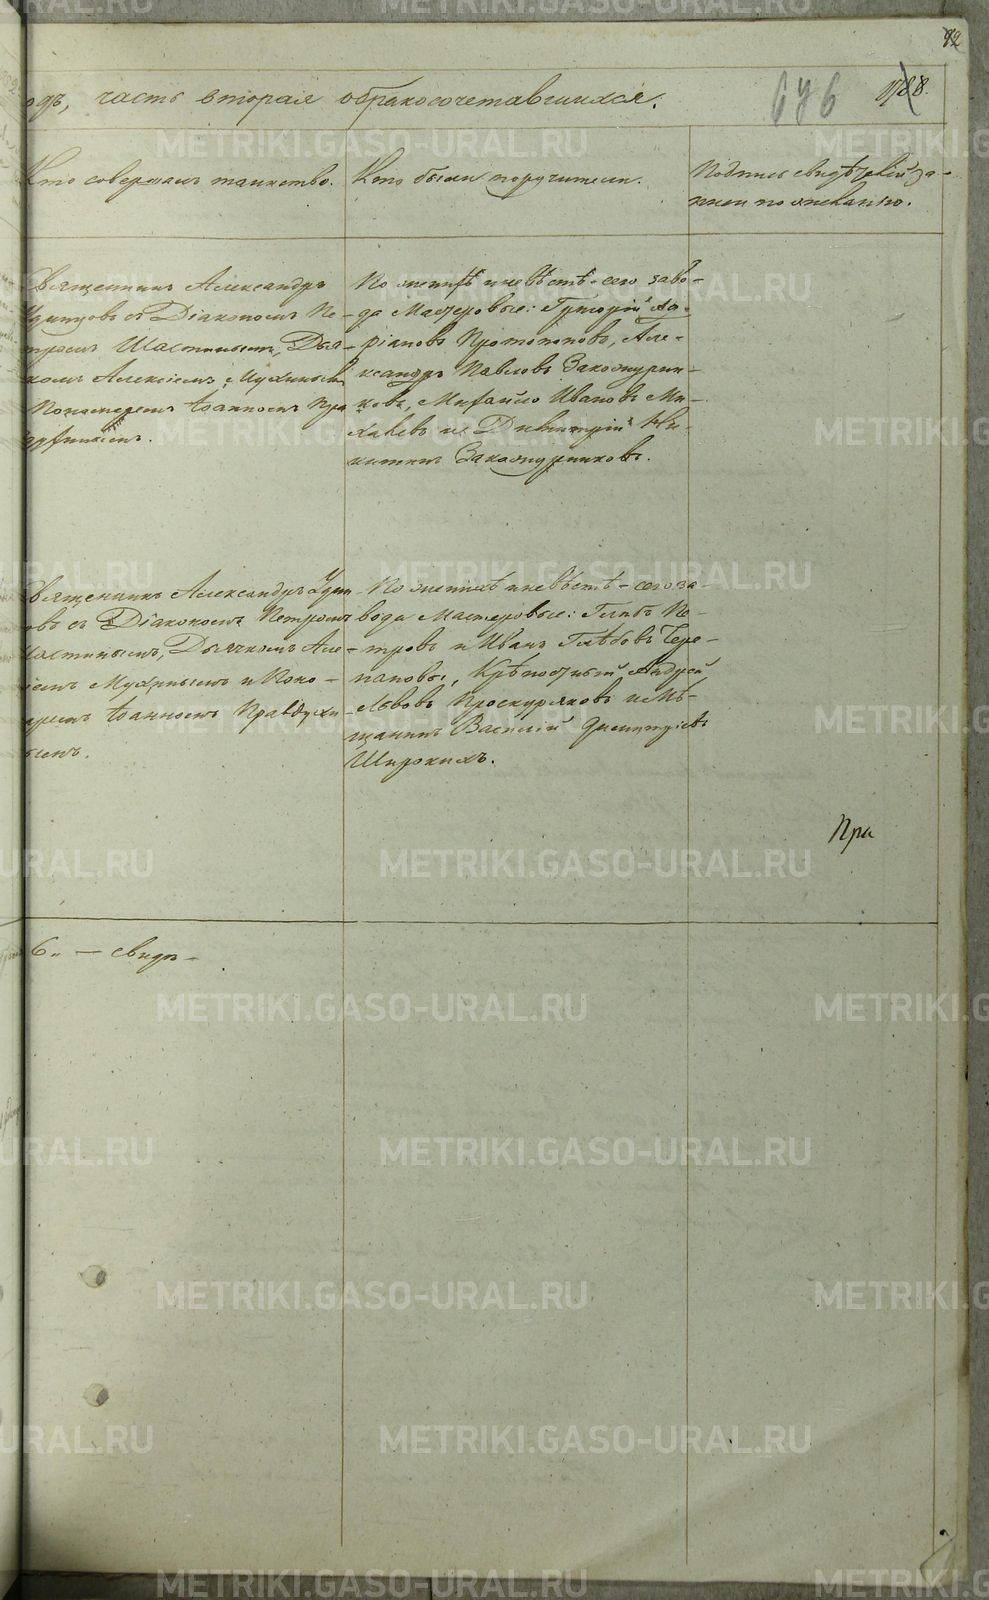 92
одъ, часть вторая о бракосочетавшихся.
676
1788.
Кто совершалъ таинство.
Кто были поручители.
Подпись свидѣтелей за-
писи по желанію.
Священникъ Александръ
Удинцовъ съ Діакономъ Пе-
тромъ Шастинымъ, Дья-
комъ Алексіемъ Мухинымъ
Пономаремъ Іоанномъ Пра
вдухинымъ.
По женихѣ и невѣстѣ - сего заво-
да Мастеровые: Григорій Ла-
ріоновъ Протопоповъ, Але-
ксандръ Павловъ Закожурни-
ковъ, Михайло Ивановъ Ми-
халевъ и Димитрій Ни-
китинъ Закожурниковъ.
Священникъ Александръ Удин
овъ съ Діакономъ Петромъ
Шастинымъ, Дьячкомъ Але-
ксіемъ Мухинымъ и Поно-
аремъ Іоанномъ Правдухи
ымъ.
По женихѣ и невѣстѣ - сего за-
вода Мастеровые: Глѣбъ Пе-
тровъ и Иванъ Глѣбовъ Чере-
пановы, Крѣпостный Андрей
Львовъ Проскуряковъ и Мѣ-
щанинъ Василій Димитріевъ
Широкихъ.
При
METRIKI.GASO-URAL.RU